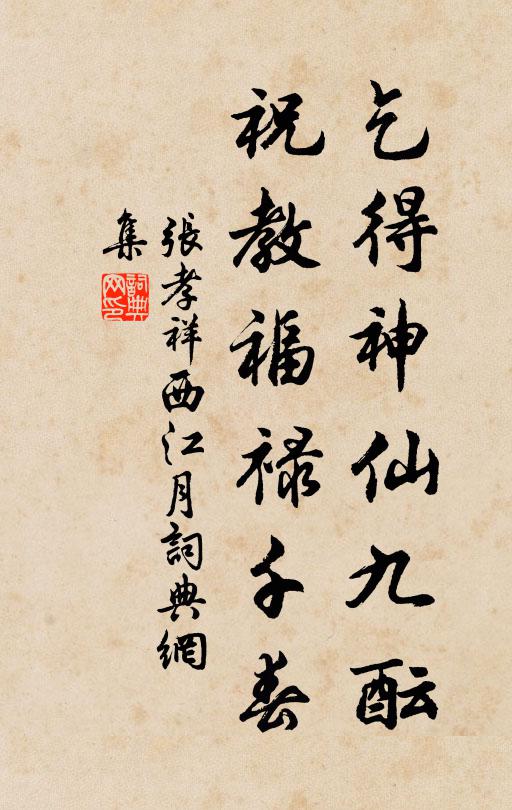 乞得神仙九酝
祝教福禄千春
張孝祥西江月詞典網
集
詞典
网印